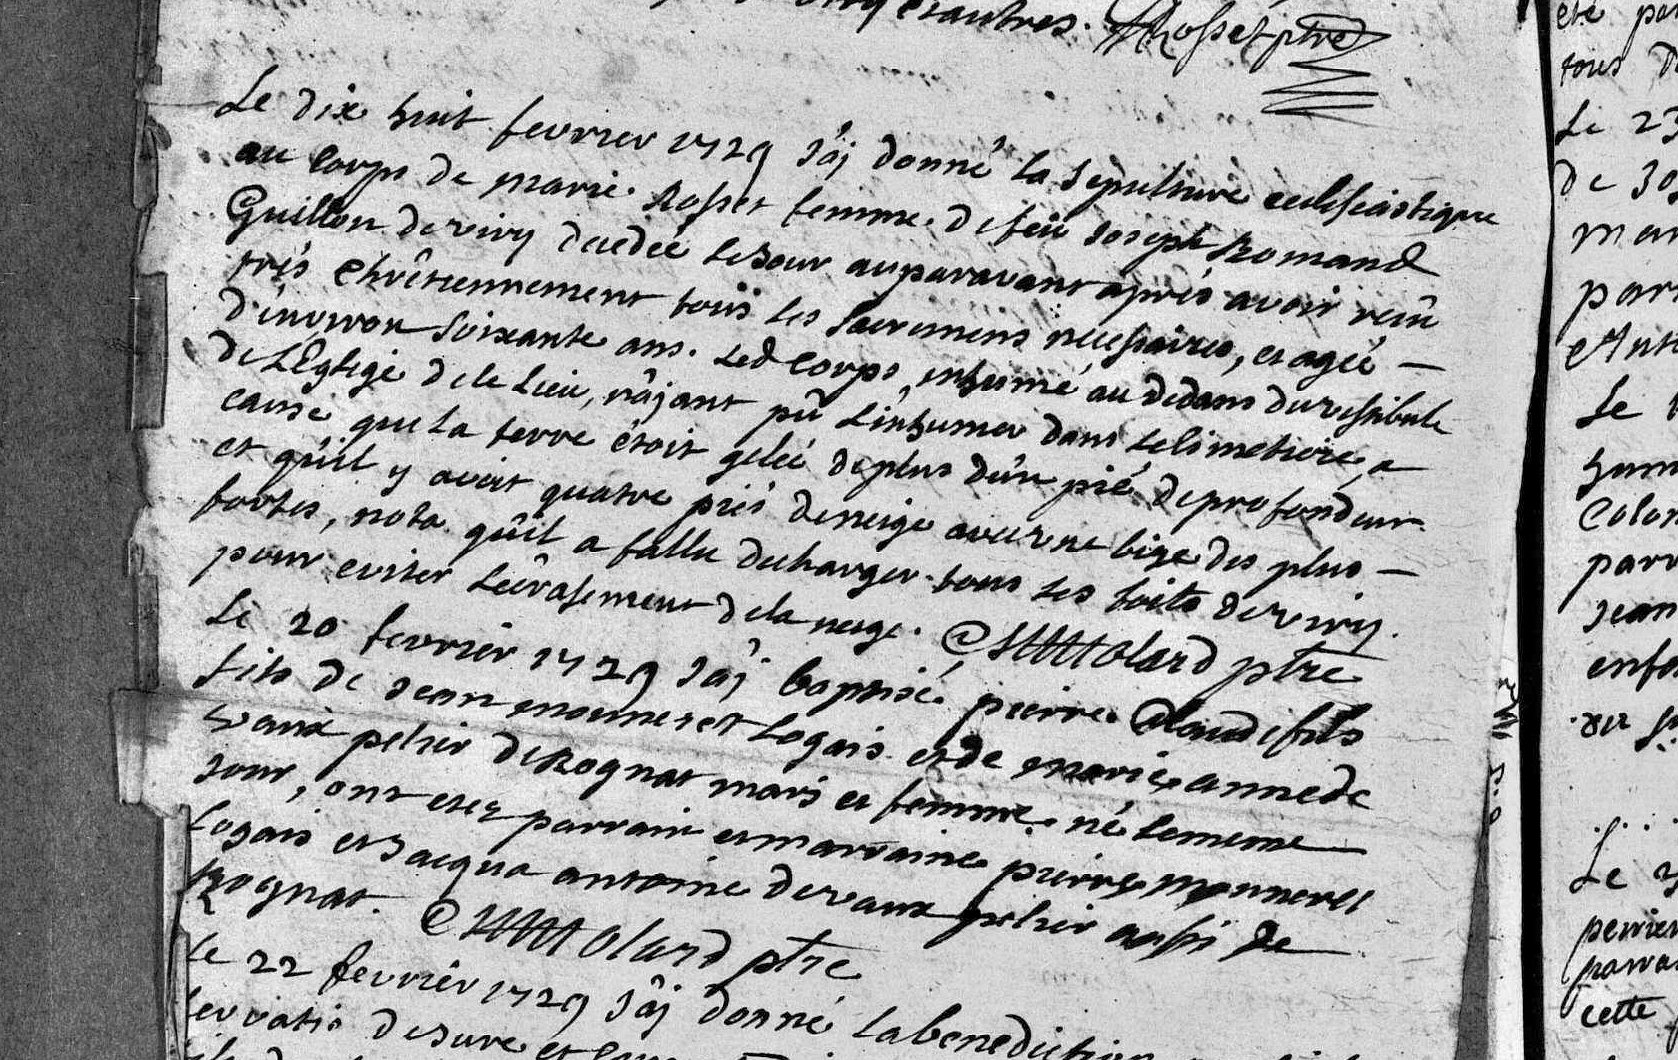 Rosset ptre
Le dix huit fevrier 1729 J'aj donné la sepulture eclesiastique
au corps de marie Rosset femme de feu Joseph Romand
Guillon de viry decedée le Jour auparavant après avoir recû
très chrêtiennement tous les sacremens necessaires, et agée —
d'environ soixante ans. Led corps inhumé au dedans du vestibule
de L'Eglise de ce lieu, n'ajant pû L'inhumer dans le cimetiere, a
cause que la terre étoit gelée de plus d'un pié de profondeur
et qu'il y avoit quatre piés de neige avec une bize des plus —
fortes, nota qu'il a fallu decharger tous les toits de viry
pour eviter L'écrasement de la neige. C olard ptre
Le 20 fevrier 1729 J'aj baptisé pierre Claude fils
fils de Jean monneret Logais et de marie anne de
vaux peltier de Rognat mari et femme né le meme —
Jour, ont etez parrain et marraine pierre monneret
Logais et Jacqua antoine devaux peltier aussi de —
Rognat. C olard ptre
Le 22 fevrier 1729 J'aj donné la benediction
de Jure et
été par
tous
Le 23
de
mar
par
Ant
Le
hum
Colon
parr
Jean
enfa
Le
perrier
parra
cette